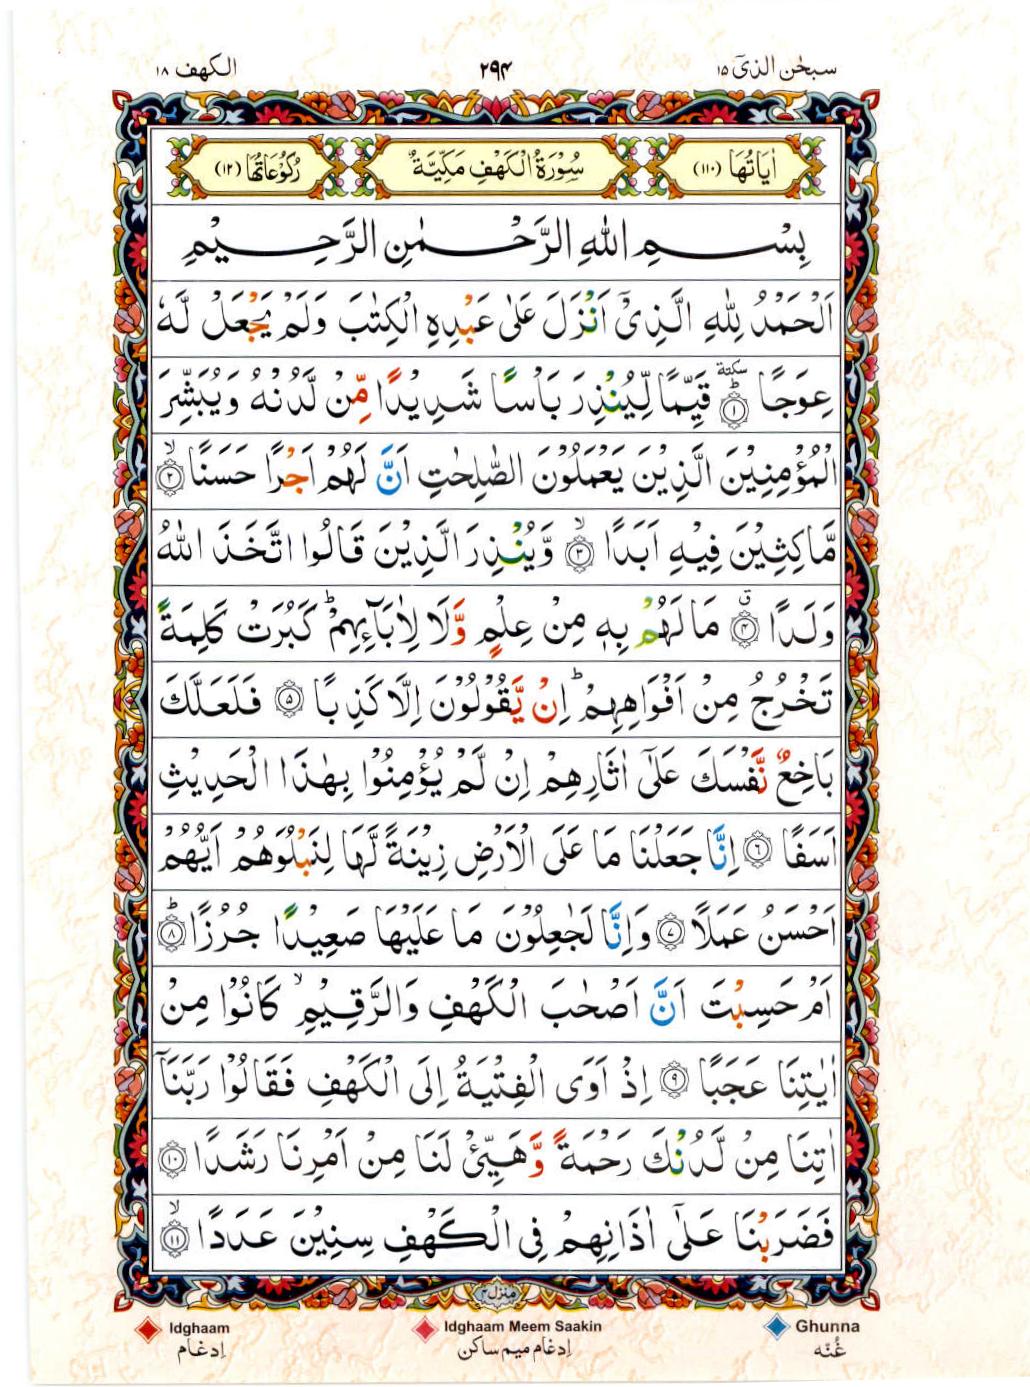 سبحٰن الذیٓ ١٥
٢٩٤
الكهف ١٨
اٰيَاتُهَا (١١٠)
سُوْرَةُ الْكَهْفِ مَكِّيَّةٌ
رُكُوْعَاتُهَا (١٢)
بِسْمِ اللّٰهِ الرَّحْمٰنِ الرَّحِيْمِ
اَلْحَمْدُ لِلّٰهِ الَّذِیْۤ اَنْزَلَ عَلٰی عَبْدِهِ الْكِتٰبَ وَلَمْ يَجْعَلْ لَّهٗ
عِوَجًا ؕ سكتة ١ قَيِّمًا لِّيُنْذِرَ بَاْسًا شَدِيْدًا مِّنْ لَّدُنْهُ وَيُبَشِّرَ
الْمُؤْمِنِيْنَ الَّذِيْنَ يَعْمَلُوْنَ الصّٰلِحٰتِ اَنَّ لَهُمْ اَجْرًا حَسَنًا ۙ ٢
مَّاكِثِيْنَ فِيْهِ اَبَدًا ۙ ٣ وَّيُنْذِرَ الَّذِيْنَ قَالُوا اتَّخَذَ اللّٰهُ
وَلَدًا ق ٤ مَا لَهُمْ بِهٖ مِنْ عِلْمٍ وَّلَا لِاٰبَآئِهِمْ ؕ كَبُرَتْ كَلِمَةً
تَخْرُجُ مِنْ اَفْوَاهِهِمْ ؕ اِنْ يَّقُوْلُوْنَ اِلَّا كَذِبًا ٥ فَلَعَلَّكَ
بَاخِعٌ نَّفْسَكَ عَلٰۤی اٰثَارِهِمْ اِنْ لَّمْ يُؤْمِنُوْا بِهٰذَا الْحَدِيْثِ
اَسَفًا ٦ اِنَّا جَعَلْنَا مَا عَلَی الْاَرْضِ زِيْنَةً لَّهَا لِنَبْلُوَهُمْ اَيُّهُمْ
اَحْسَنُ عَمَلًا ٧ وَاِنَّا لَجٰعِلُوْنَ مَا عَلَيْهَا صَعِيْدًا جُرُزًا ؕ ٨
اَمْ حَسِبْتَ اَنَّ اَصْحٰبَ الْكَهْفِ وَالرَّقِيْمِ ۙ كَانُوْا مِنْ
اٰيٰتِنَا عَجَبًا ٩ اِذْ اَوَی الْفِتْيَةُ اِلَی الْكَهْفِ فَقَالُوْا رَبَّنَاۤ
اٰتِنَا مِنْ لَّدُنْكَ رَحْمَةً وَّهَيِّئْ لَنَا مِنْ اَمْرِنَا رَشَدًا ١٠
فَضَرَبْنَا عَلٰۤی اٰذَانِهِمْ فِی الْكَهْفِ سِنِيْنَ عَدَدًا ۙ ١١
منزل ٤
Idghaam
Idghaam Meem Saakin
Ghunna
اِدغام
اِدغام میم ساکن
غُنّه